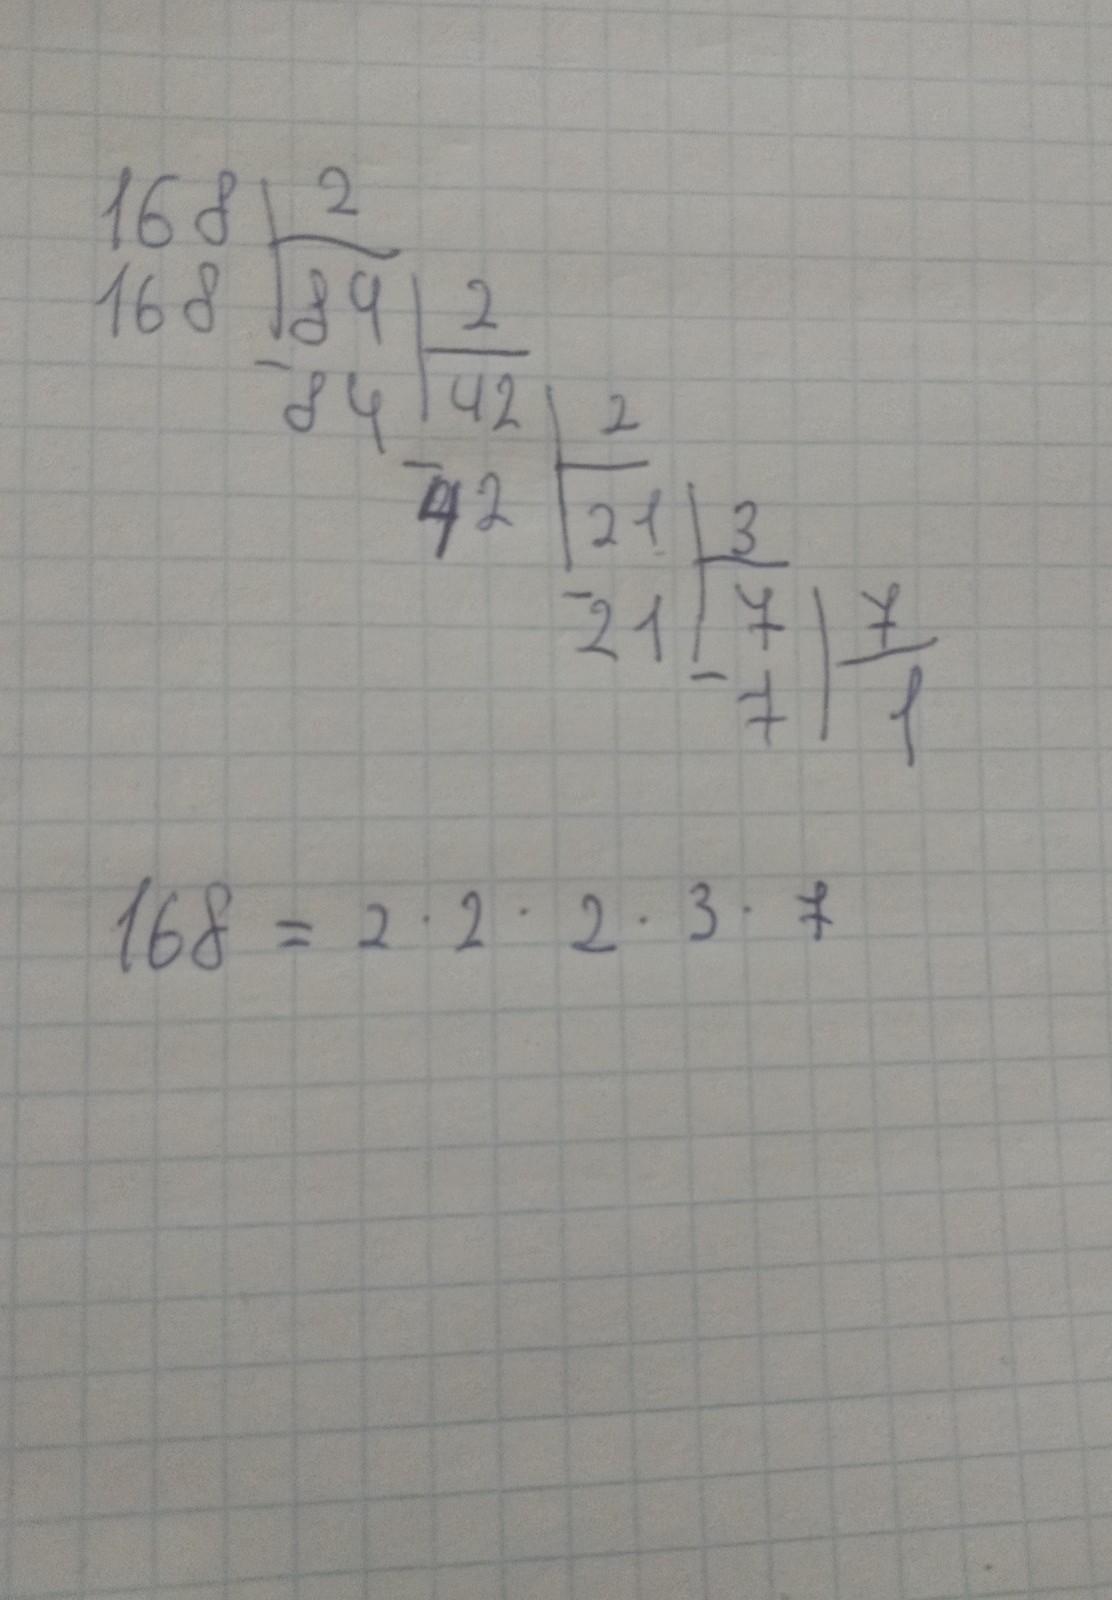 168 2
168 84 2
- 84 42 2
- 42 21 3
- 21 7 7
- 7 1
168 = 2 · 2 · 2 · 3 · 7